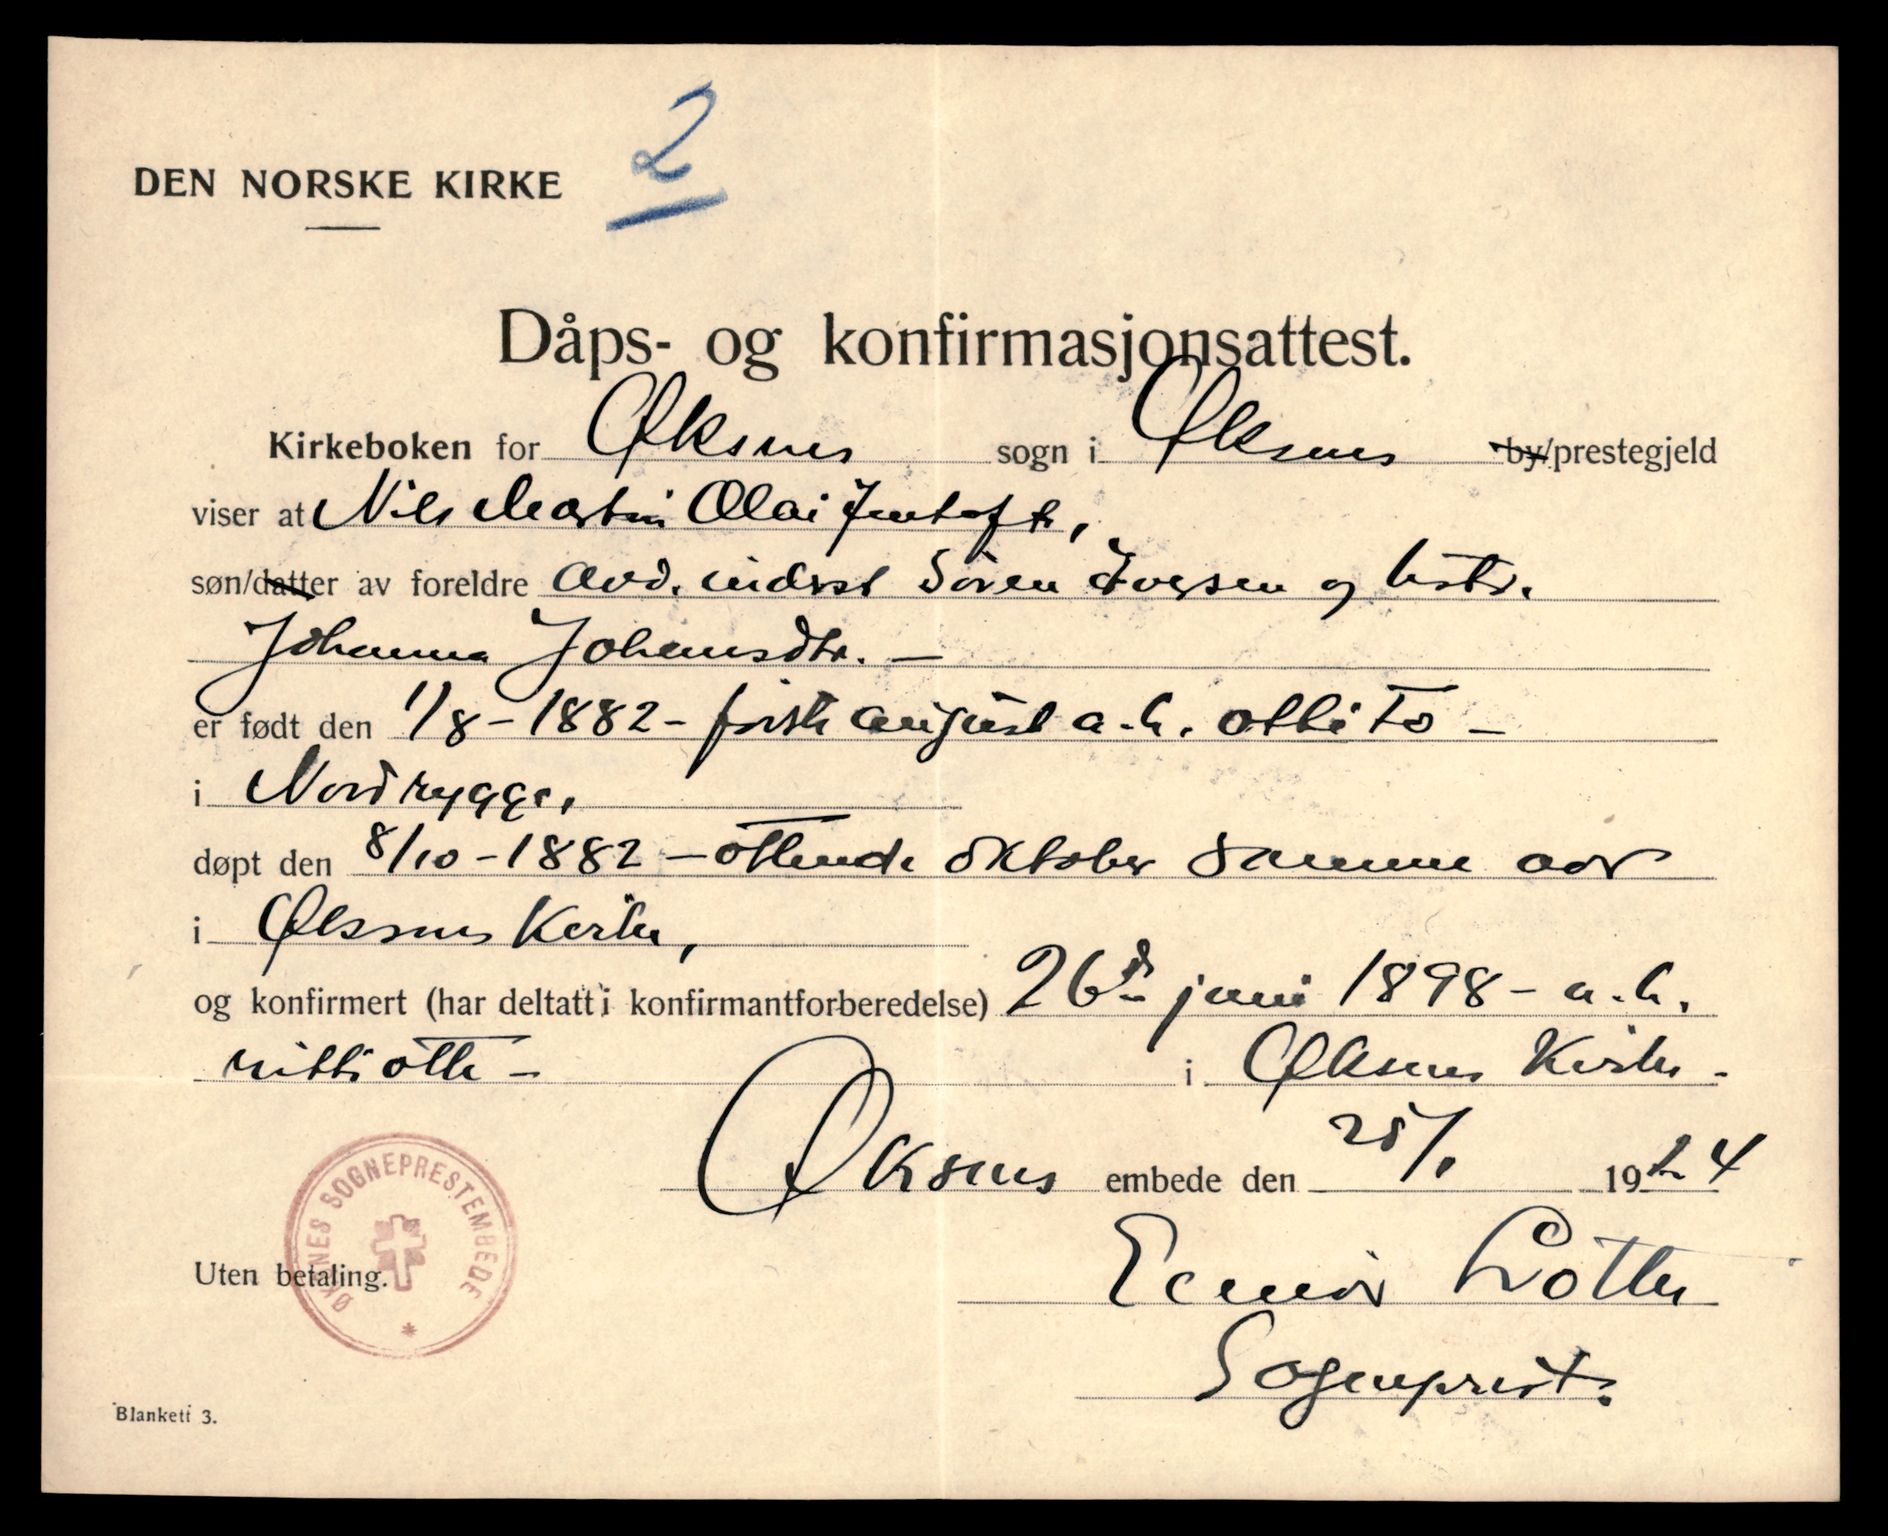 2
DEN NORSKE KIRKE
Dåps- og konfirmasjonsattest.
Kirkeboken for Øksnes sogn i Øksnes by/prestegjeld
viser at Nils Martin Olai Jentoft,
søn/datter av foreldre avd. inderst Søren Iversen og hstr.
Johanna Johansdtr. —
er født den 1/8 - 1882 - første august a. h. otti to -
i Nordrygge,
døpt den 8/10 - 1882 - ottende oktober samme aar
i Øksnes Kirke,
og konfirmert (har deltatt i konfirmantforberedelse) 26de juni 1898 - a. h.
nitti otte - i Øksnes Kirke -
Øksnes embede den 25/1 1924
ØKSNES SOGNEPRESTEMBEDE
Uten betaling.
Lothe
Sogneprest.
Blankett 3.